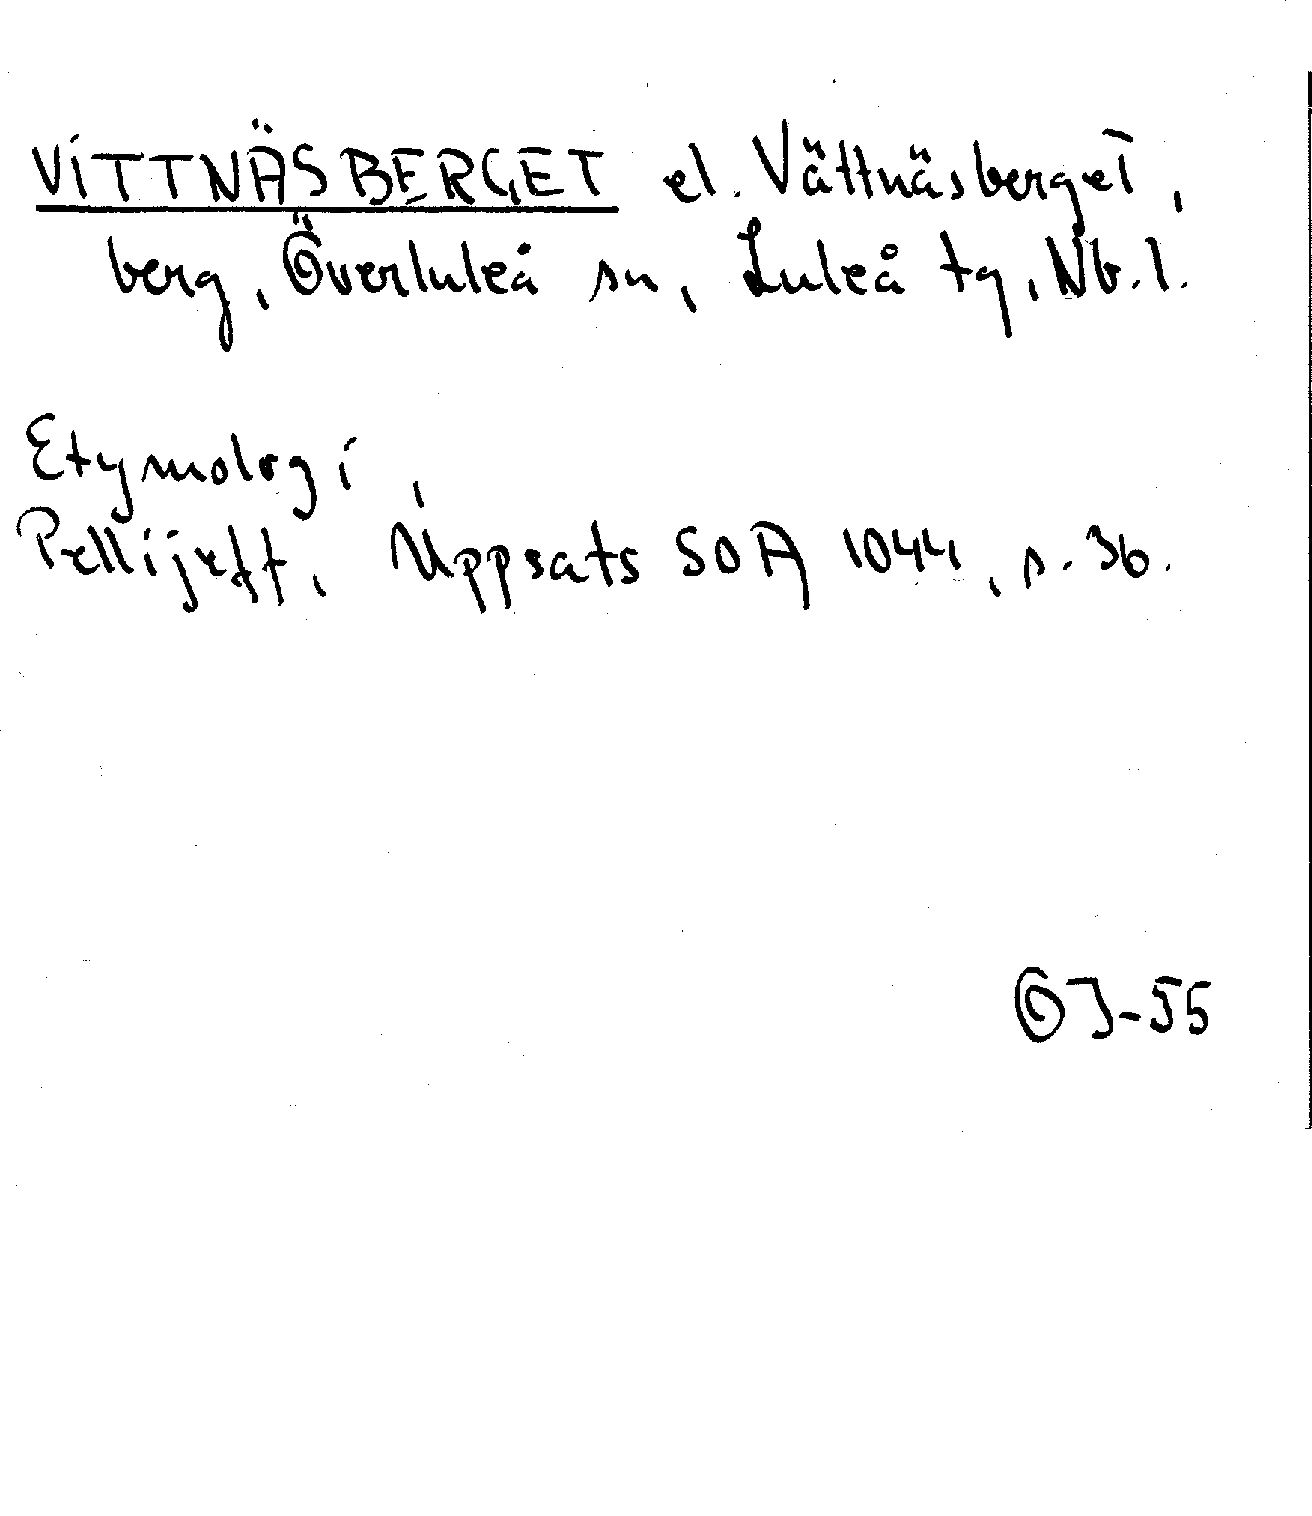 VITTNÄSBERGET el. Vättnäsberget,
berg, Överluleå sn, Luleå tg, Nb.l.
Etymologi,
Pellijeff, Uppsats SOA 1044, s. 36.
OJ-55